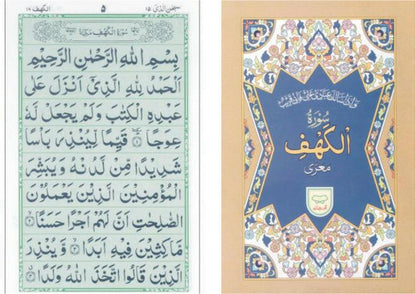 سبحٰن الذی ۱۵
۵
الکهف ۱۸
سُوْرَةُ الْكَهْفِ مَكِّيَّةٌ
بِسْمِ اللّٰهِ الرَّحْمٰنِ الرَّحِيْمِ
اَلْحَمْدُ لِلّٰهِ الَّذِيْۤ اَنْزَلَ عَلٰى
عَبْدِهِ الْكِتٰبَ وَلَمْ يَجْعَلْ لَّهٗ
عِوَجًا ۱ قَيِّمًا لِّيُنْذِرَ بَاْسًا
شَدِيْدًا مِّنْ لَّدُنْهُ وَيُبَشِّرَ
الْمُؤْمِنِيْنَ الَّذِيْنَ يَعْمَلُوْنَ
الصّٰلِحٰتِ اَنَّ لَهُمْ اَجْرًا حَسَنًا ۲
مَّاكِثِيْنَ فِيْهِ اَبَدًا ۳ وَّيُنْذِرَ
الَّذِيْنَ قَالُوا اتَّخَذَ اللّٰهُ وَلَدًا ۴
سُوْرَةُ
الْكَهْفِ
معری